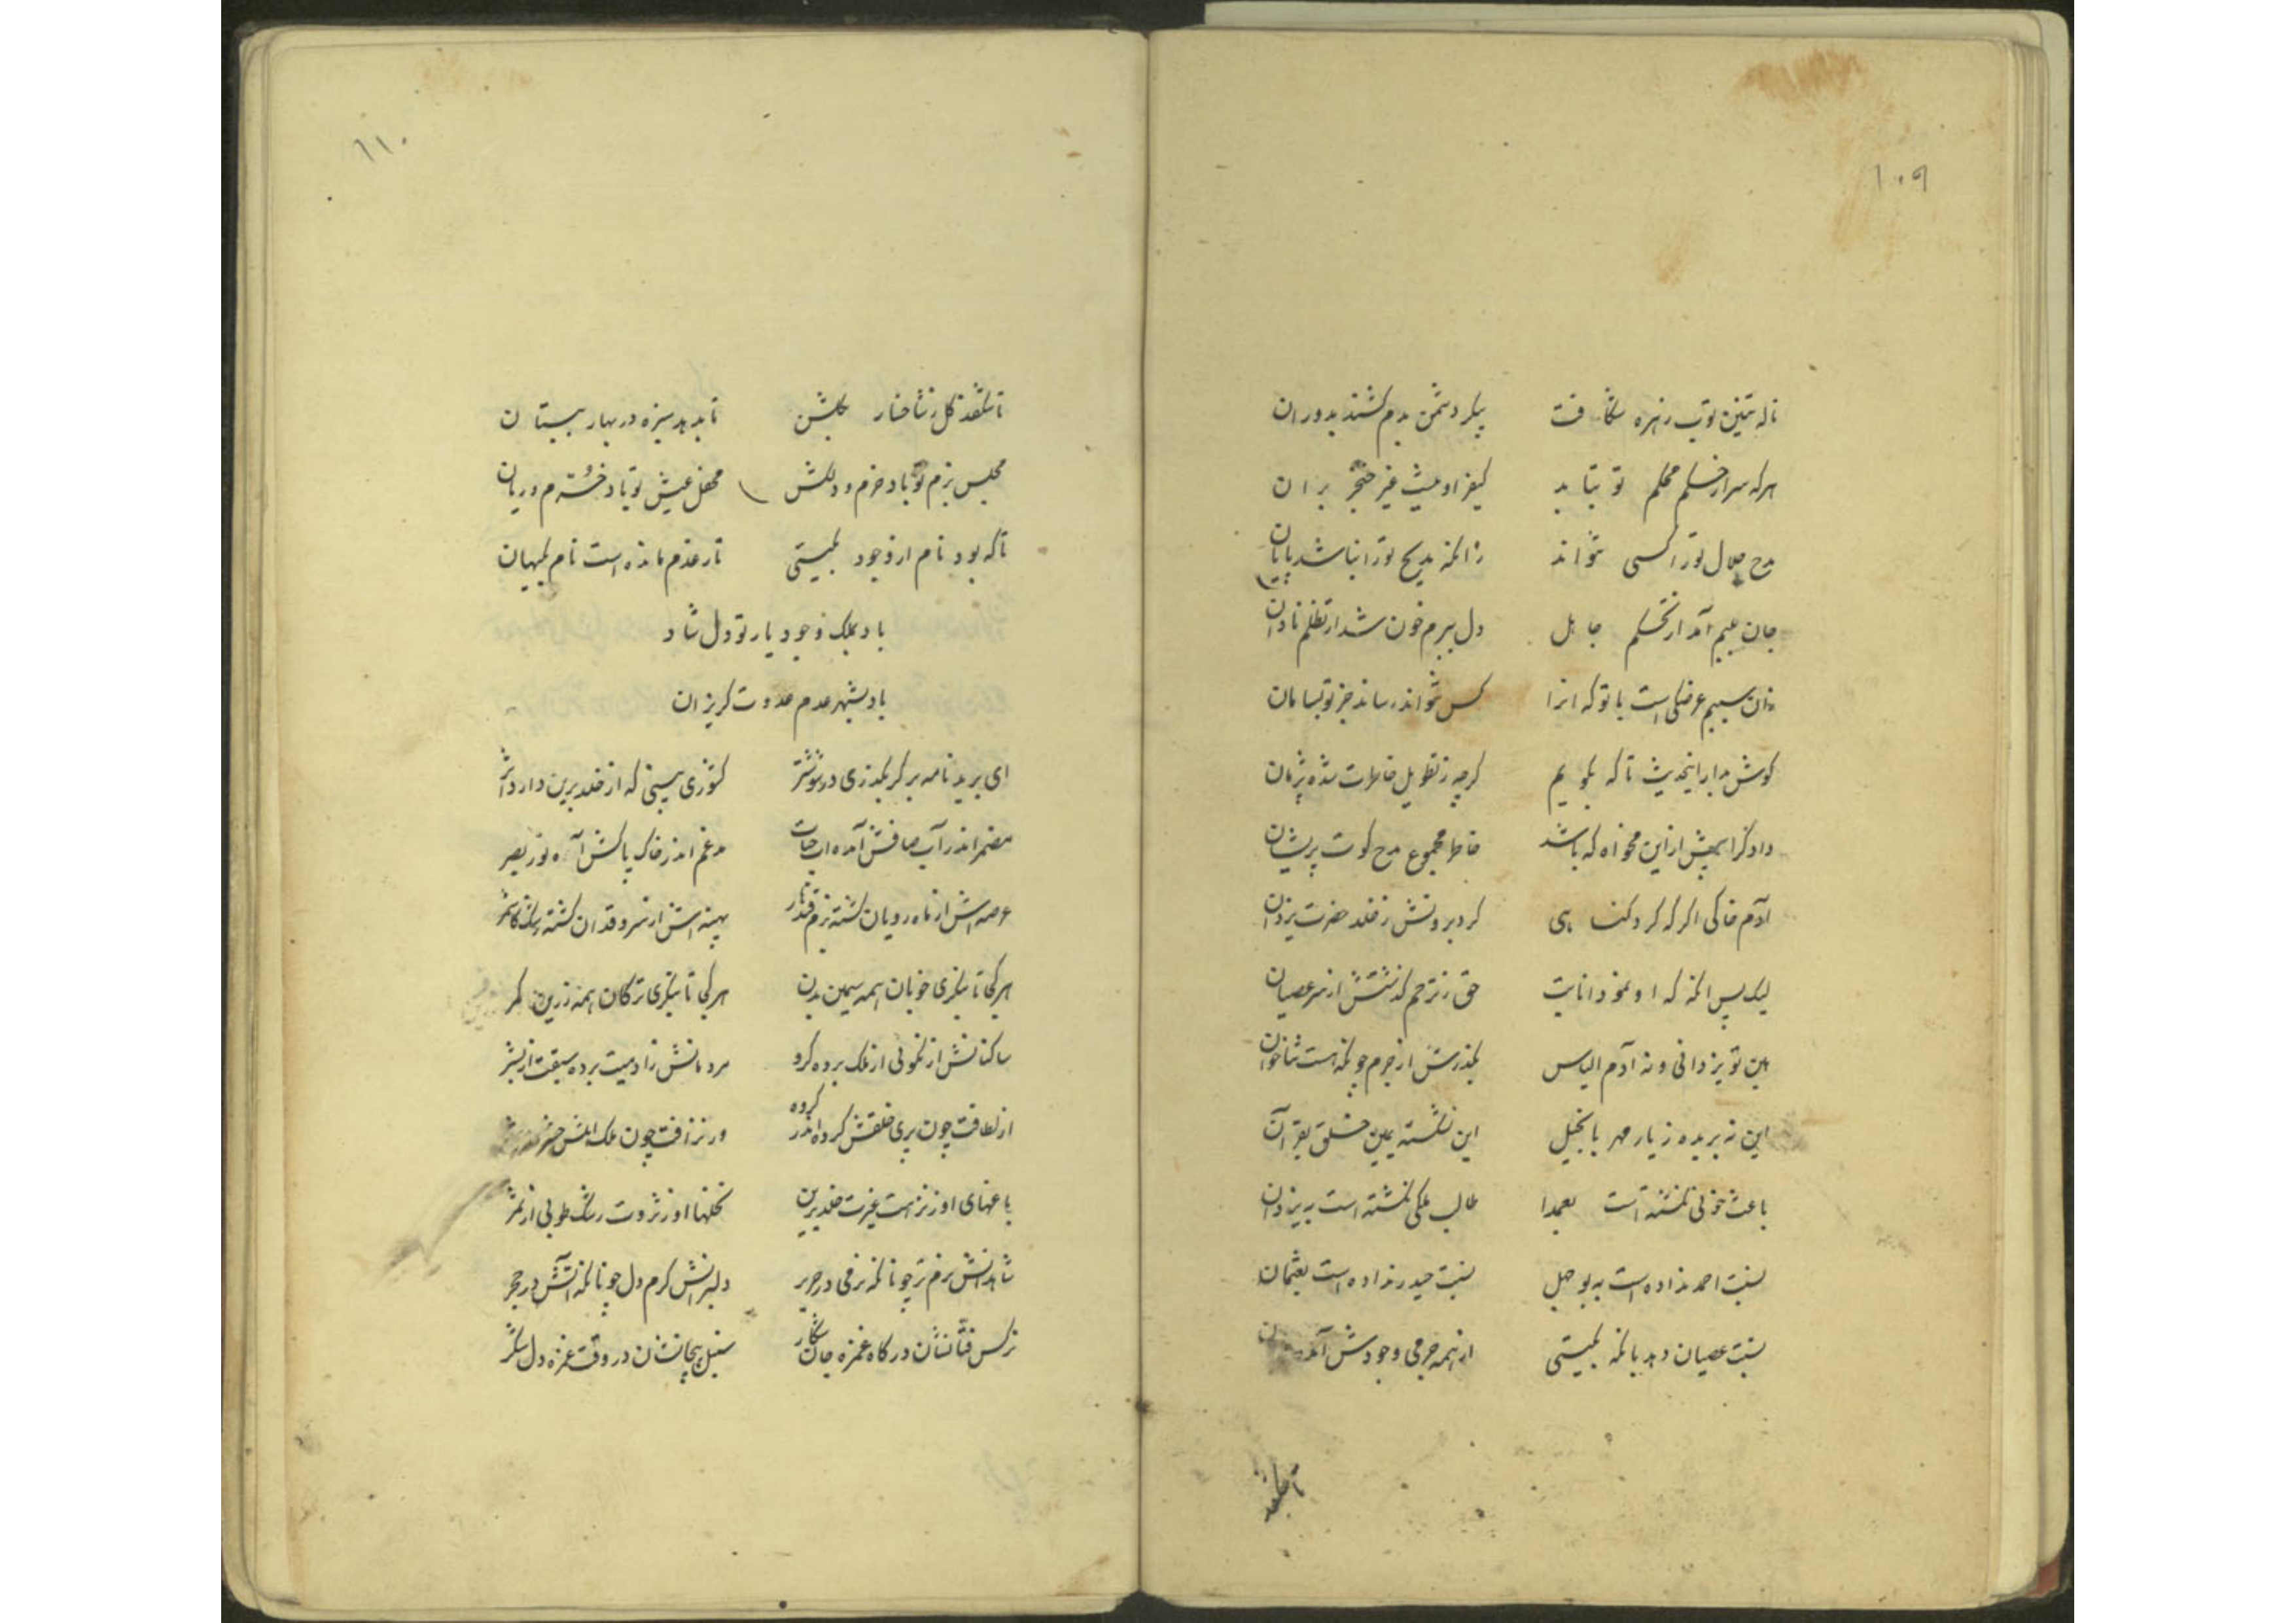 ١٠٩
ناله تنین توپ زهره شکافت پیکر دشمن بدم کشند بدوران
هرکه سر از حکم محکم تو بتابد کیفر او نیست غیر خنجر بران
مدح جلال تو را کسی نتواند زانکه مدیح تو را نباشد پایان
جان بلبم آمد از تحکم جاهل دل ببرم خون شد از تظلم نادان
زان سپیم عرضکی است با تو که انرا کس نتواند رساند جز تو بسامان
گوش بدار اینحدیث تا که بگویم گرچه ز تطویل خاطرت شده پژمان
دادگرا بیش ازین مخواه که باشد خاطر مجموع مدح گوت پریشان
آدم خاکی اگر که کرد گناهی کرد برونش ز خلد حضرت یزدان
لیک پس انکه که او نمود انابت حق ز ترحم گذشتش از سر عصیان
هین تو نه یزدانی و نه آدم الیاس بگذرش از جرم چونکه هست ثناخوان
این نه بریده ز یار مهر بانجیل این نشکسته یمین خلق بقرآن
باعث خونی نگشته است بعمدا طالب ملکی نگشته است به یزدان
نسبت احمد نداده است به بوجهل نسبت حیدر نداده است بعثمان
نسبت عصیان دهد بانکه بگیتی از همه جرمی وجودش آمد
تا بشکفد
١١٠
تا شکفد گل ز شاخسار بگلشن تا بدمد سبزه در بهار ببستان
مجلس بزم تو باد خرم و دلکش محفل عیش تو باد خرم و ریان
تا که بود نام از وجود بگیتی تا ز عدم مانده است نام بگیهان
باد بملک وجود یار تو دل شاد
باد بشهر عدم عدوت گریزان
ای برید نامه بر گر بگذری در شوشتر کشوری بینی که از خلد برین دارد اثر
مضمر اندر آب صافش آمده آب حیات مدغم اندر خاک پاکش آمده نور بصر
عرصه اش از ماه رویان گشته بزم قندهار پهنه اش از سرو قدان گشته رشک کاشمر
هر کجا تا بنگری خوبان همه سیمین بدن هر کجا تا بنگری ترکان همه زرین کمر
ساکنانش از نکوئی از ملک برده گرو مردمانش ز ادمیت برده سبقت از بشر
از لطافت چون پری خلقش گروه اندر گروه ور نزافت چون ملک اهلش
باغهای او ز نزهت غیرت خلد برین نخلها او ز ثروت رشک طوبی از ثمر
شاهدانش نرم تن چونانکه برفی در حریر دلبرانش گرم دل چونانکه آتش در حجر
نرگس فتانشان در گاه غمزه جان شکار سنبل پیچانشان در وقت غمزه دل شکر